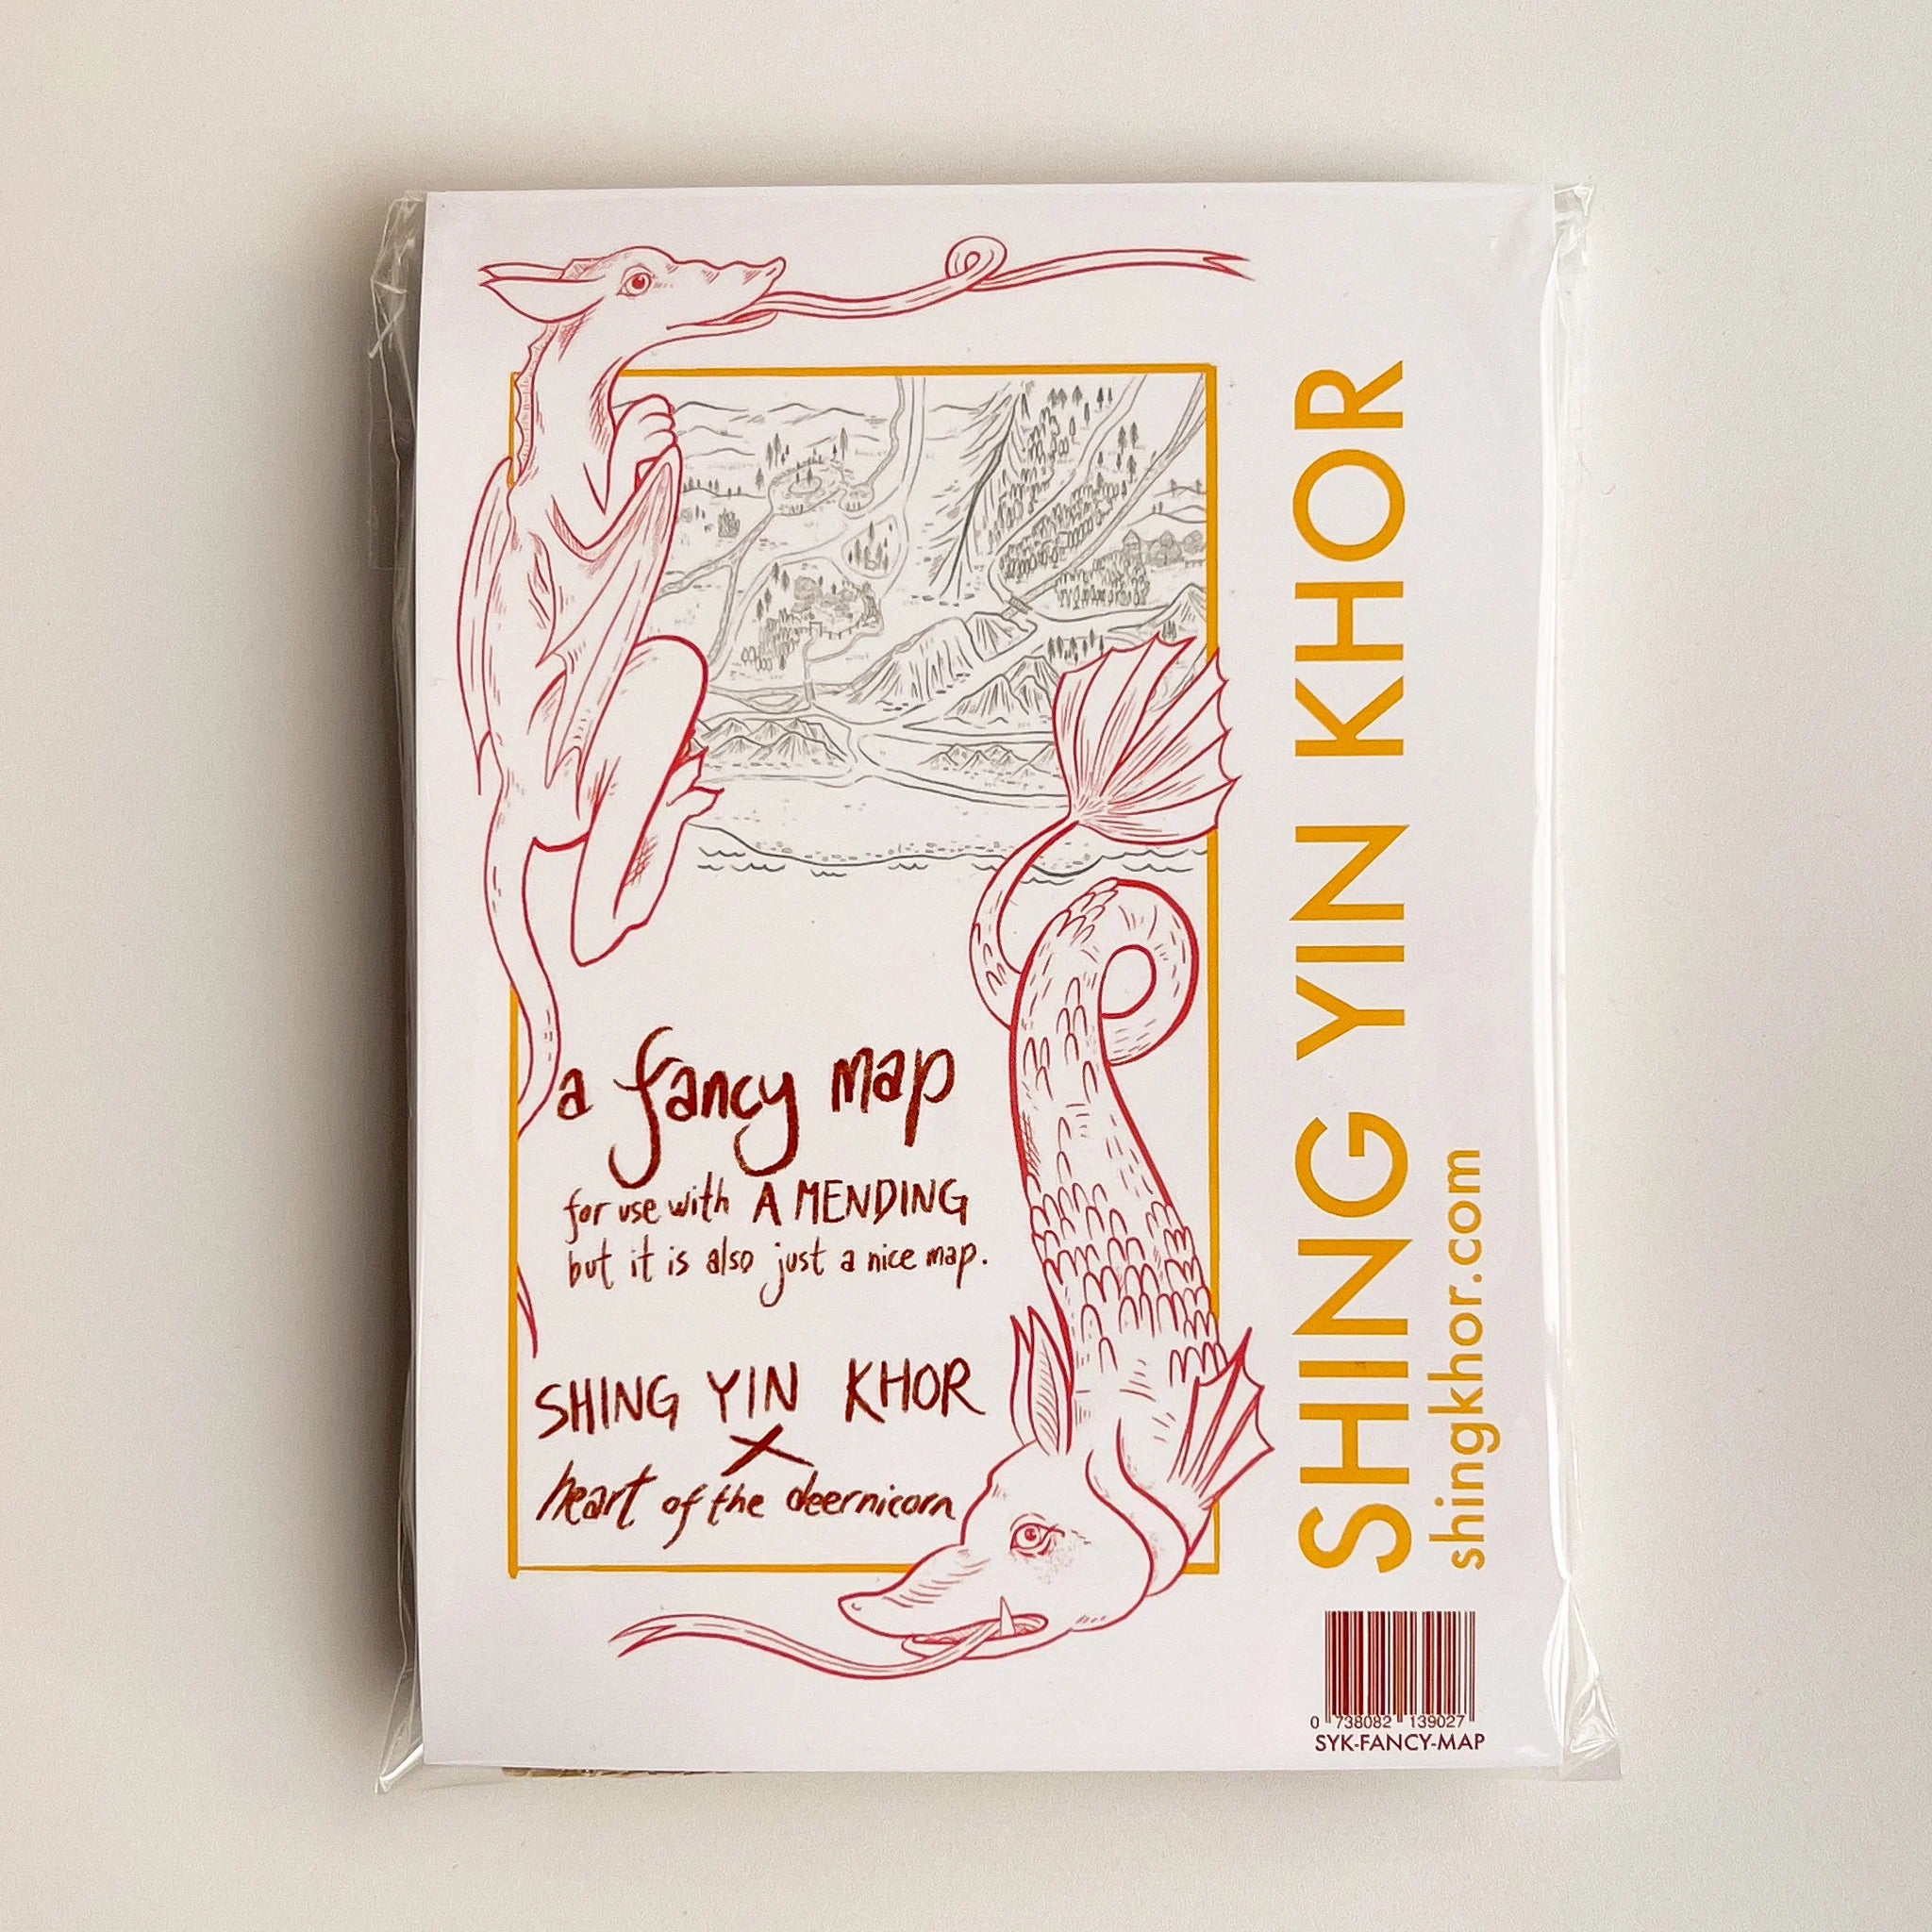 a fancy map
for use with A MENDING
but it is also just a nice map.
SHING YIN KHOR
X
heart of the deernicorn
SHING YIN KHOR
shingkhor.com
0 738082 139027
SYK-FANCY-MAP